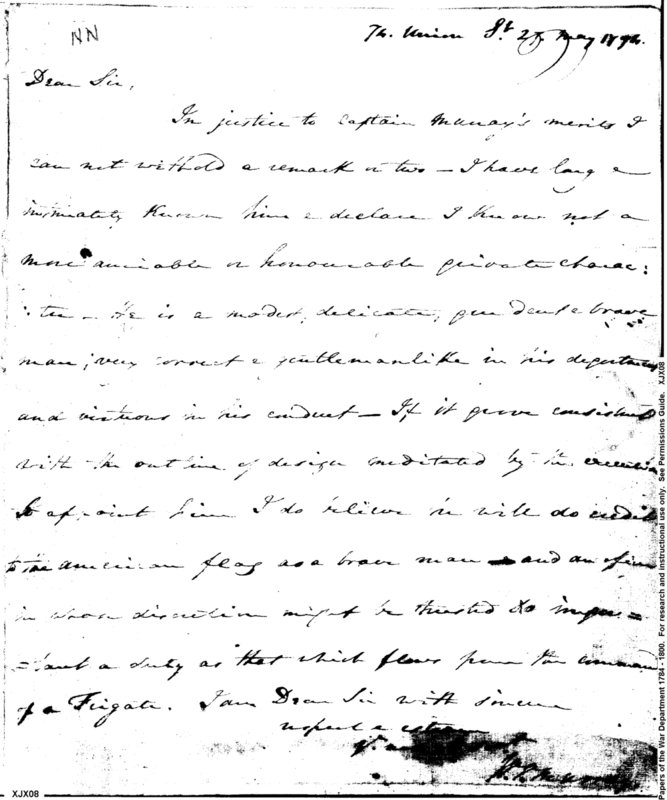 NN
Th. Union St. 27 May 1794.
Dear Sir,
In justice to Captain Murray's merits I
can not withold a remark or two — I have long &
intimately known him & declare I know not a
more amiable or honourable private charac:
:ter — He is a modest, delicate, prudent & brave
man; very correct & gentlemanlike in his deportment
and virtuous in his conduct — If it prove consistent
with the outline of design meditated by the
to appoint him I do believe he will do credit
to the american flag as a brave man and an officer
in whose discretion might be trusted so impor=
=tant a duty as that which flows from the command
of a Frigate. I am Dear Sir with sincere
respect & esteem
XJX08
Papers of the War Department 1784 - 1800. For research and instructional use only. See Permissions Guide. XJX08